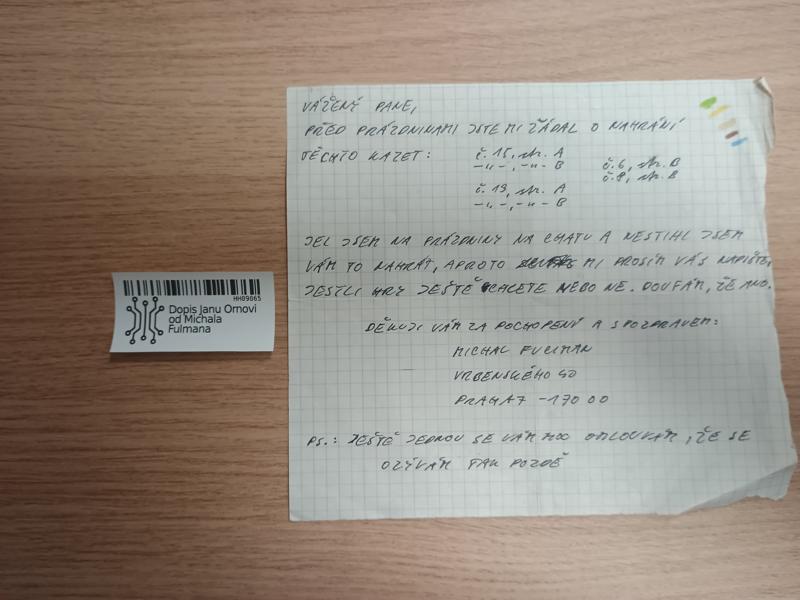 HH09065
Dopis Janu Ornovi
od Michala
Fulmana
VÁŽENÝ PANE,
PŘED PRÁZDNINAMI JSTE MI ŽÁDAL O NAHRÁNÍ
TĚCHTO KAZET: č. 15, str. A
-"-, -"- B
č. 6, str. B
č. 8, str. B
č. 19, str. A
-"-, -"- B
JEL JSEM NA PRÁZDNINY NA CHATU A NESTIHL JSEM
VÁM TO NAHRÁT, A PROTO MI PROSÍM VÁS NAPIŠTE,
JESTLI HRY JEŠTĚ CHCETE NEBO NE. DOUFÁM, ŽE ANO.
DĚKUJI VÁM ZA POCHOPENÍ A S POZDRAVEM:
MICHAL FULMAN
VRBENSKÉHO 40
PRAHA 7 - 170 00
PS.: JEŠTĚ JEDNOU SE VÁM MOC OMLOUVÁM, ŽE SE
OZÝVÁM TAK POZDĚ